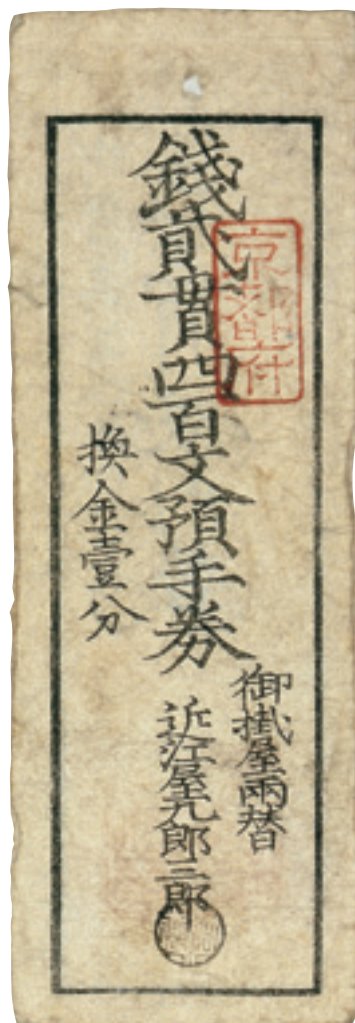 錢貳貫四百文預手券
換金壹分
御掛屋兩替
近江屋九郎三郎